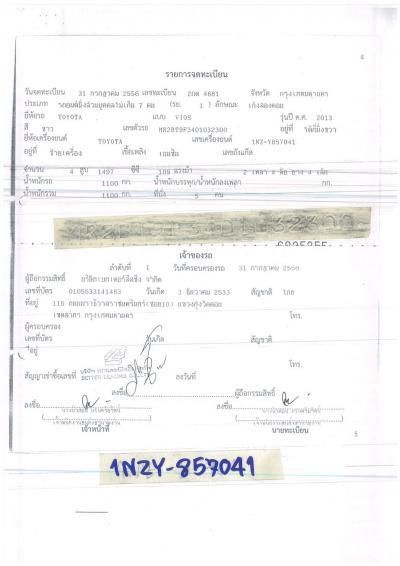 4
รายการจดทะเบียน
วันจดทะเบียน 31 กรกฎาคม 2556 เลขทะเบียน 2กด 4681 จังหวัด กรุงเทพมหานคร
ประเภท รถยนต์นั่งส่วนบุคคลไม่เกิน 7 คน (รย. 1 ) ลักษณะ เก๋งสองตอน
ยี่ห้อรถ TOYOTA แบบ VIOS รุ่นปี ค.ศ. 2013
สี ขาว เลขตัวรถ MR2BT9F3401032300 อยู่ที่
ยี่ห้อเครื่องยนต์ TOYOTA เลขเครื่องยนต์ 1NZ-Y857041
อยู่ที่ เชื้อเพลิง เบนซิน เลขถังแก๊ส
จำนวน 4 สูบ 1497 ซีซี 109 แรงม้า 2 เพลา 4 ล้อ ยาง 4 เส้น
น้ำหนักรถ 1100 กก. น้ำหนักบรรทุก/น้ำหนักลงเพลา กก.
น้ำหนักรวม 1100 กก. ที่นั่ง 5 คน
เจ้าของรถ
ลำดับที่ 1 วันที่ครอบครองรถ 31 กรกฎาคม 2556
ผู้ถือกรรมสิทธิ์ จำกัด
เลขที่บัตร 0105533141463 วันเกิด 3 ธันวาคม 2533 สัญชาติ ไทย
ที่อยู่ 115 แขวงทุ่งวัดดอน
เขตสาทร กรุงเทพมหานคร โทร.
ผู้ครอบครอง
เลขที่บัตร วันเกิด สัญชาติ
ที่อยู่ โทร.
สัญญาเช่าซื้อเลขที่ ลงวันที่
ลงชื่อ ผู้ถือกรรมสิทธิ์
ลงชื่อ ลงชื่อ
เจ้าหน้าที่ นายทะเบียน
5
1NZY-857041